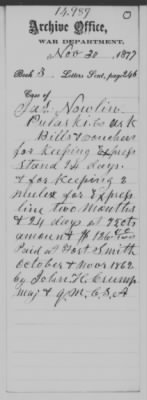 14.989
Archive Office,
WAR DEPARTMENT,
Nov 30 1877
Book 3. Letters Sent, page 246
Case of
Jas. Nowlin
Pulaski Co Ark
Bills & vouchers
for keeping Express
stand 24 days.
& for keeping 2
mules for Express
line two months
& 24 days at 75cts
amount $126
Paid at Fort Smith
October & Novr 1862
by John H. Crump
Maj & Q.M. C.S.A